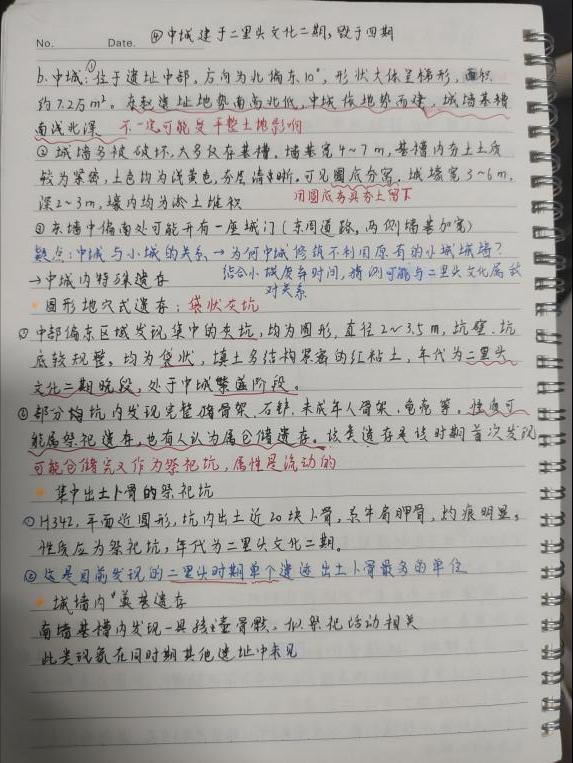 ④中城建于二里头文化二期，毁于四期
No. Date.
b.中城：①位于遗址中部，方向为北偏东10°，形状大体呈梯形，面积
约7.2万m²。在赵遗址地势南高北低，中城依地势而建，城墙基槽
南浅北深 不一定可能是平整土地影响
②城墙多被破坏，大多仅存基槽。墙基宽4~7m，基槽内夯土土质
较为紧密，土色均为浅黄色，夯层清晰。可见圜底夯窝。城壕宽3~6m，
深2~3m，壕内均为淤土堆积 用圜底夯具夯土留下
③东墙中偏南处可能开有一座城门（东周道路，两侧墙基加宽）
疑点：中城与小城的关系→为何中城修筑不利用原有的小城城墙？
结合小城废弃时间，猜测可能与二里头文化属敌
对关系
→中城内特殊遗存
圆形地穴式遗存：袋状灰坑
①中部偏东区域发现集中的灰坑，均为圆形，直径2~3.5m，坑壁、坑
底较规整，均为袋状，填土多结构紧密的红粘土，年代为二里头
文化二期晚段，处于中城繁盛阶段。
②部分袋坑内发现完整猪骨架、石铲、未成年人骨架、龟壳等，性质可
能属祭祀遗存，也有人认为属仓储遗存。该类遗存是该时期首次发现
可能仓储完又作为祭祀坑，属性是流动的
集中出土卜骨的祭祀坑
①H342，平面近圆形，坑内出土近20块卜骨，系牛肩胛骨，灼痕明显。
性质应为祭祀坑，年代为二里头文化二期。
②这是目前发现的二里头时期单个遗迹出土卜骨最多的单位
城墙内"奠基遗存
南墙基槽内发现一具孩童骨骸，似祭祀活动相关
此类现象在同时期其他遗址中未见